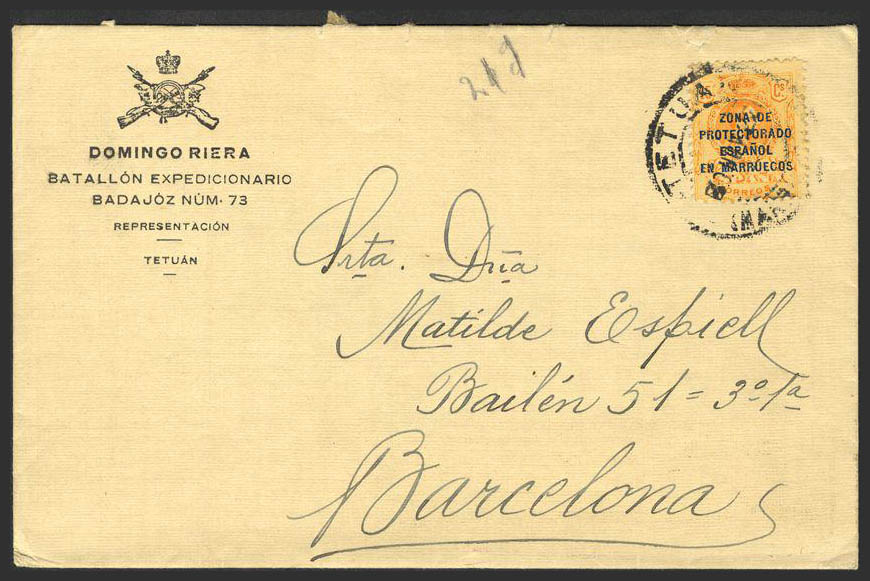 DOMINGO RIERA
BATALLÓN EXPEDICIONARIO
BADAJÓZ NÚM. 73
REPRESENTACIÓN
TETUÁN
TETUAN
Cs
ZONA DE
PROTECTORADO
ESPAÑOL
EN MARRUECOS
CORREOS
Srta. Dña
Matilde Espiell
Bailén 51=3º-1ª
Barcelona